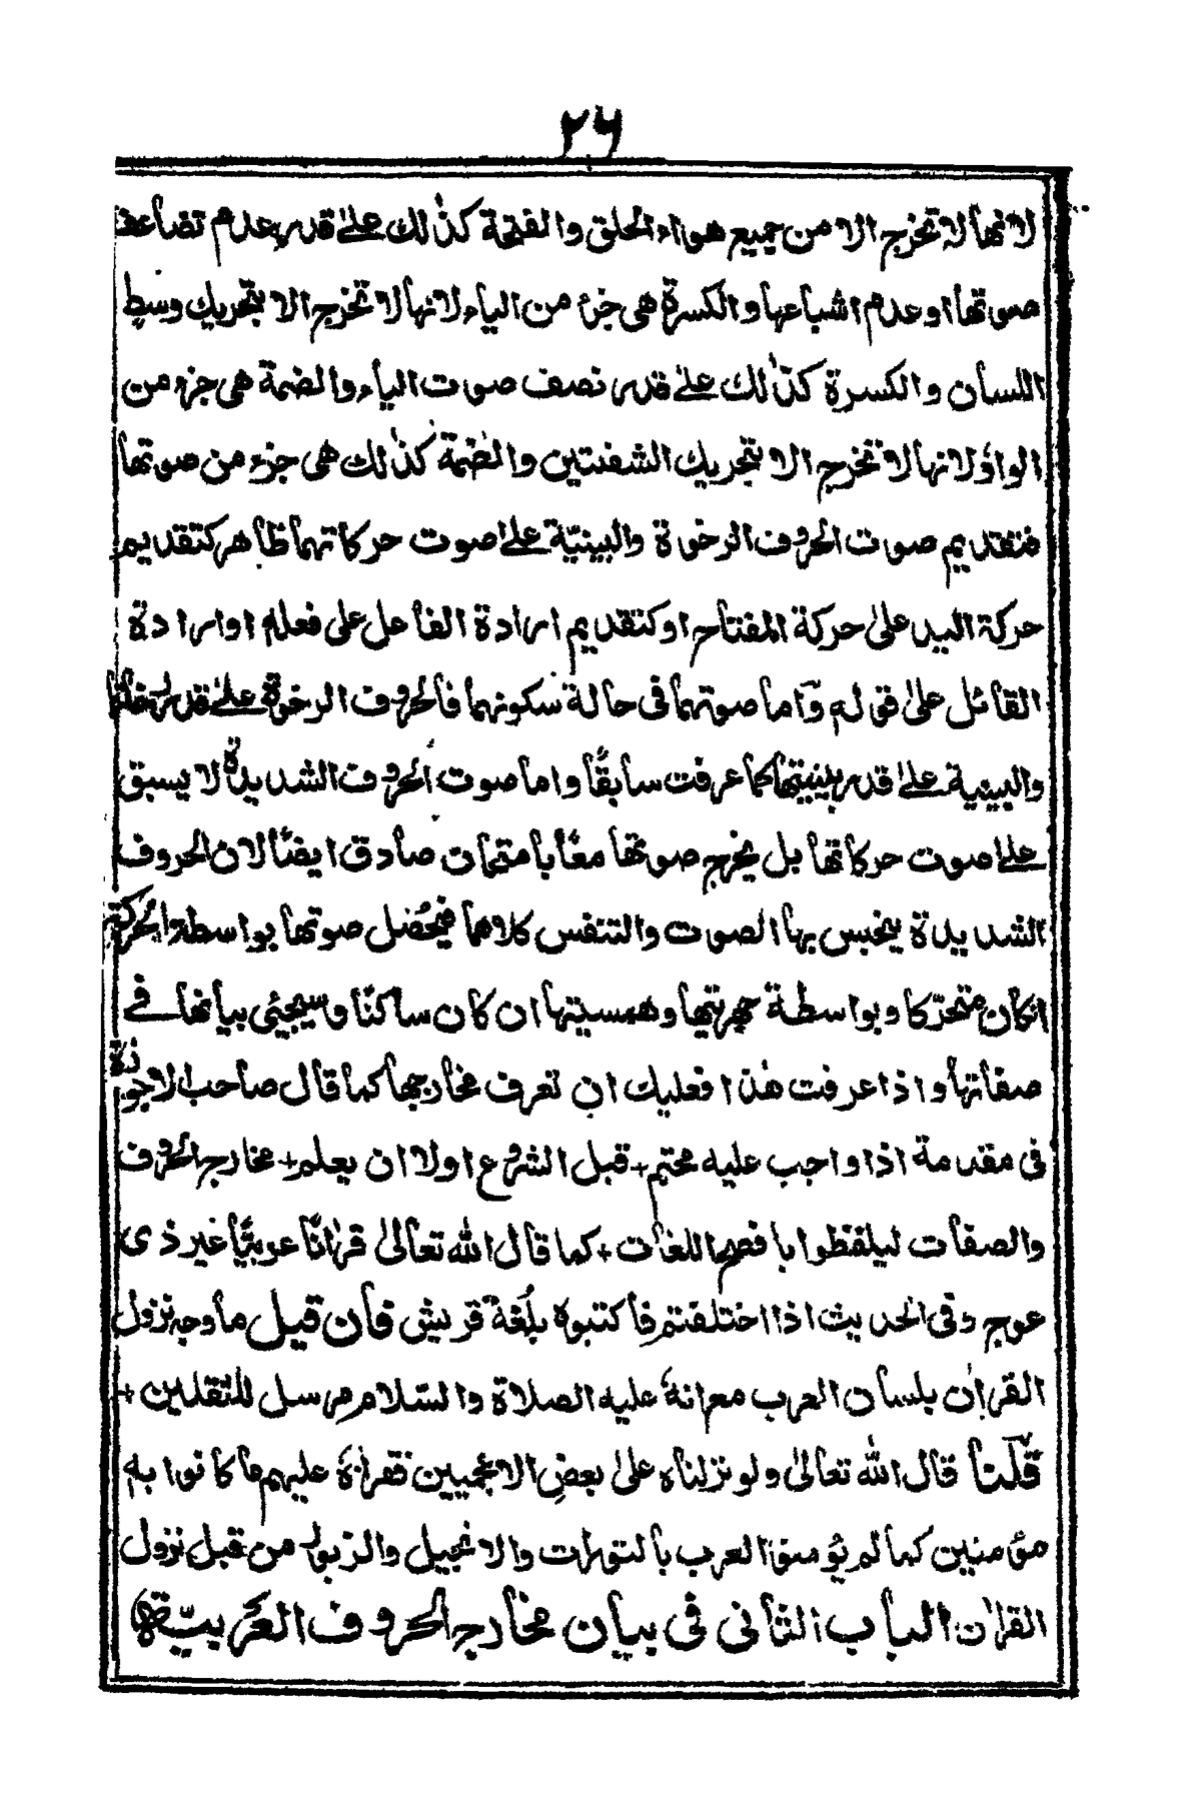 ٢٦
لانها لا تخرج الا من جميع هواء الحلق والفتحة كذٰلك علىٰ قدر عدم تضاعف
صوتها او عدم اشباعها والكسرة هى جزء من الياء لانها لا تخرج الا بتحريك وسط
اللسان والكسرة كذٰلك علىٰ قدر نصف صوت الياء والضمة هى جزء من
الواو لانها لا تخرج الا بتحريك الشفتين والضمة كذٰلك هى جزء من صوتها
فتقديم صوت الحروف الرخوة والبينيّة على صوت حركاتهما ظاهر كتقديم
حركة اليد علىٰ حركة المفتاح او كتقديم ارادة الفاعل على فعله او ارادة
القائل علىٰ قوله وآما صوتهما فى حالة سكونهما فالحروف الرخوة علىٰ قدر رخاوتها
والبينية علىٰ قدر بينيتها كما عرفت سابقًا واما صوت الحروف الشديدة لا يسبق
على صوت حركاتها بل يخرج صوتها معًا بامتحان صادق ايضًا لان الحروف
الشديدة ينحبس بها الصوت والتنفس كلاهما فيحصل صوتها بواسطة الحركة
انكان متحرّكا وبواسطة جهريتها وهمسيتها ان كان ساكنًا وسيجيئى بيانها فى
صفاتها واذا عرفت هٰذا فعليك ان تعرف مخارجها كما قال صاحب الاجوزة
فى مقدمة اذا واجب عليه محتم + قبل الشروع اولا ان يعلم + مخارج الحروف
والصفات ليلفظوا بافصح اللغات + كما قال الله تعالىٰ قرٰانًا عربيًّا غير ذى
عوج وفى الحديث اذا اختلفتم فاكتبوه بلُغة قريش فان قيل ما وجه نزول
القراٰن بلسان العرب مع انهٗ عليه الصلاة والسّلام مرسل للثقلين +
قلنا قال الله تعالىٰ ولو نزلناه علىٰ بعض الاعجميين فقراهٗ عليهم ما كانوا به
مؤمنين كما لم يؤمنوا العرب بالتورات والانجيل والزبور من قبل نزول
القراٰن الباب الثانى فى بيان مخارج الحروف العربيّتها